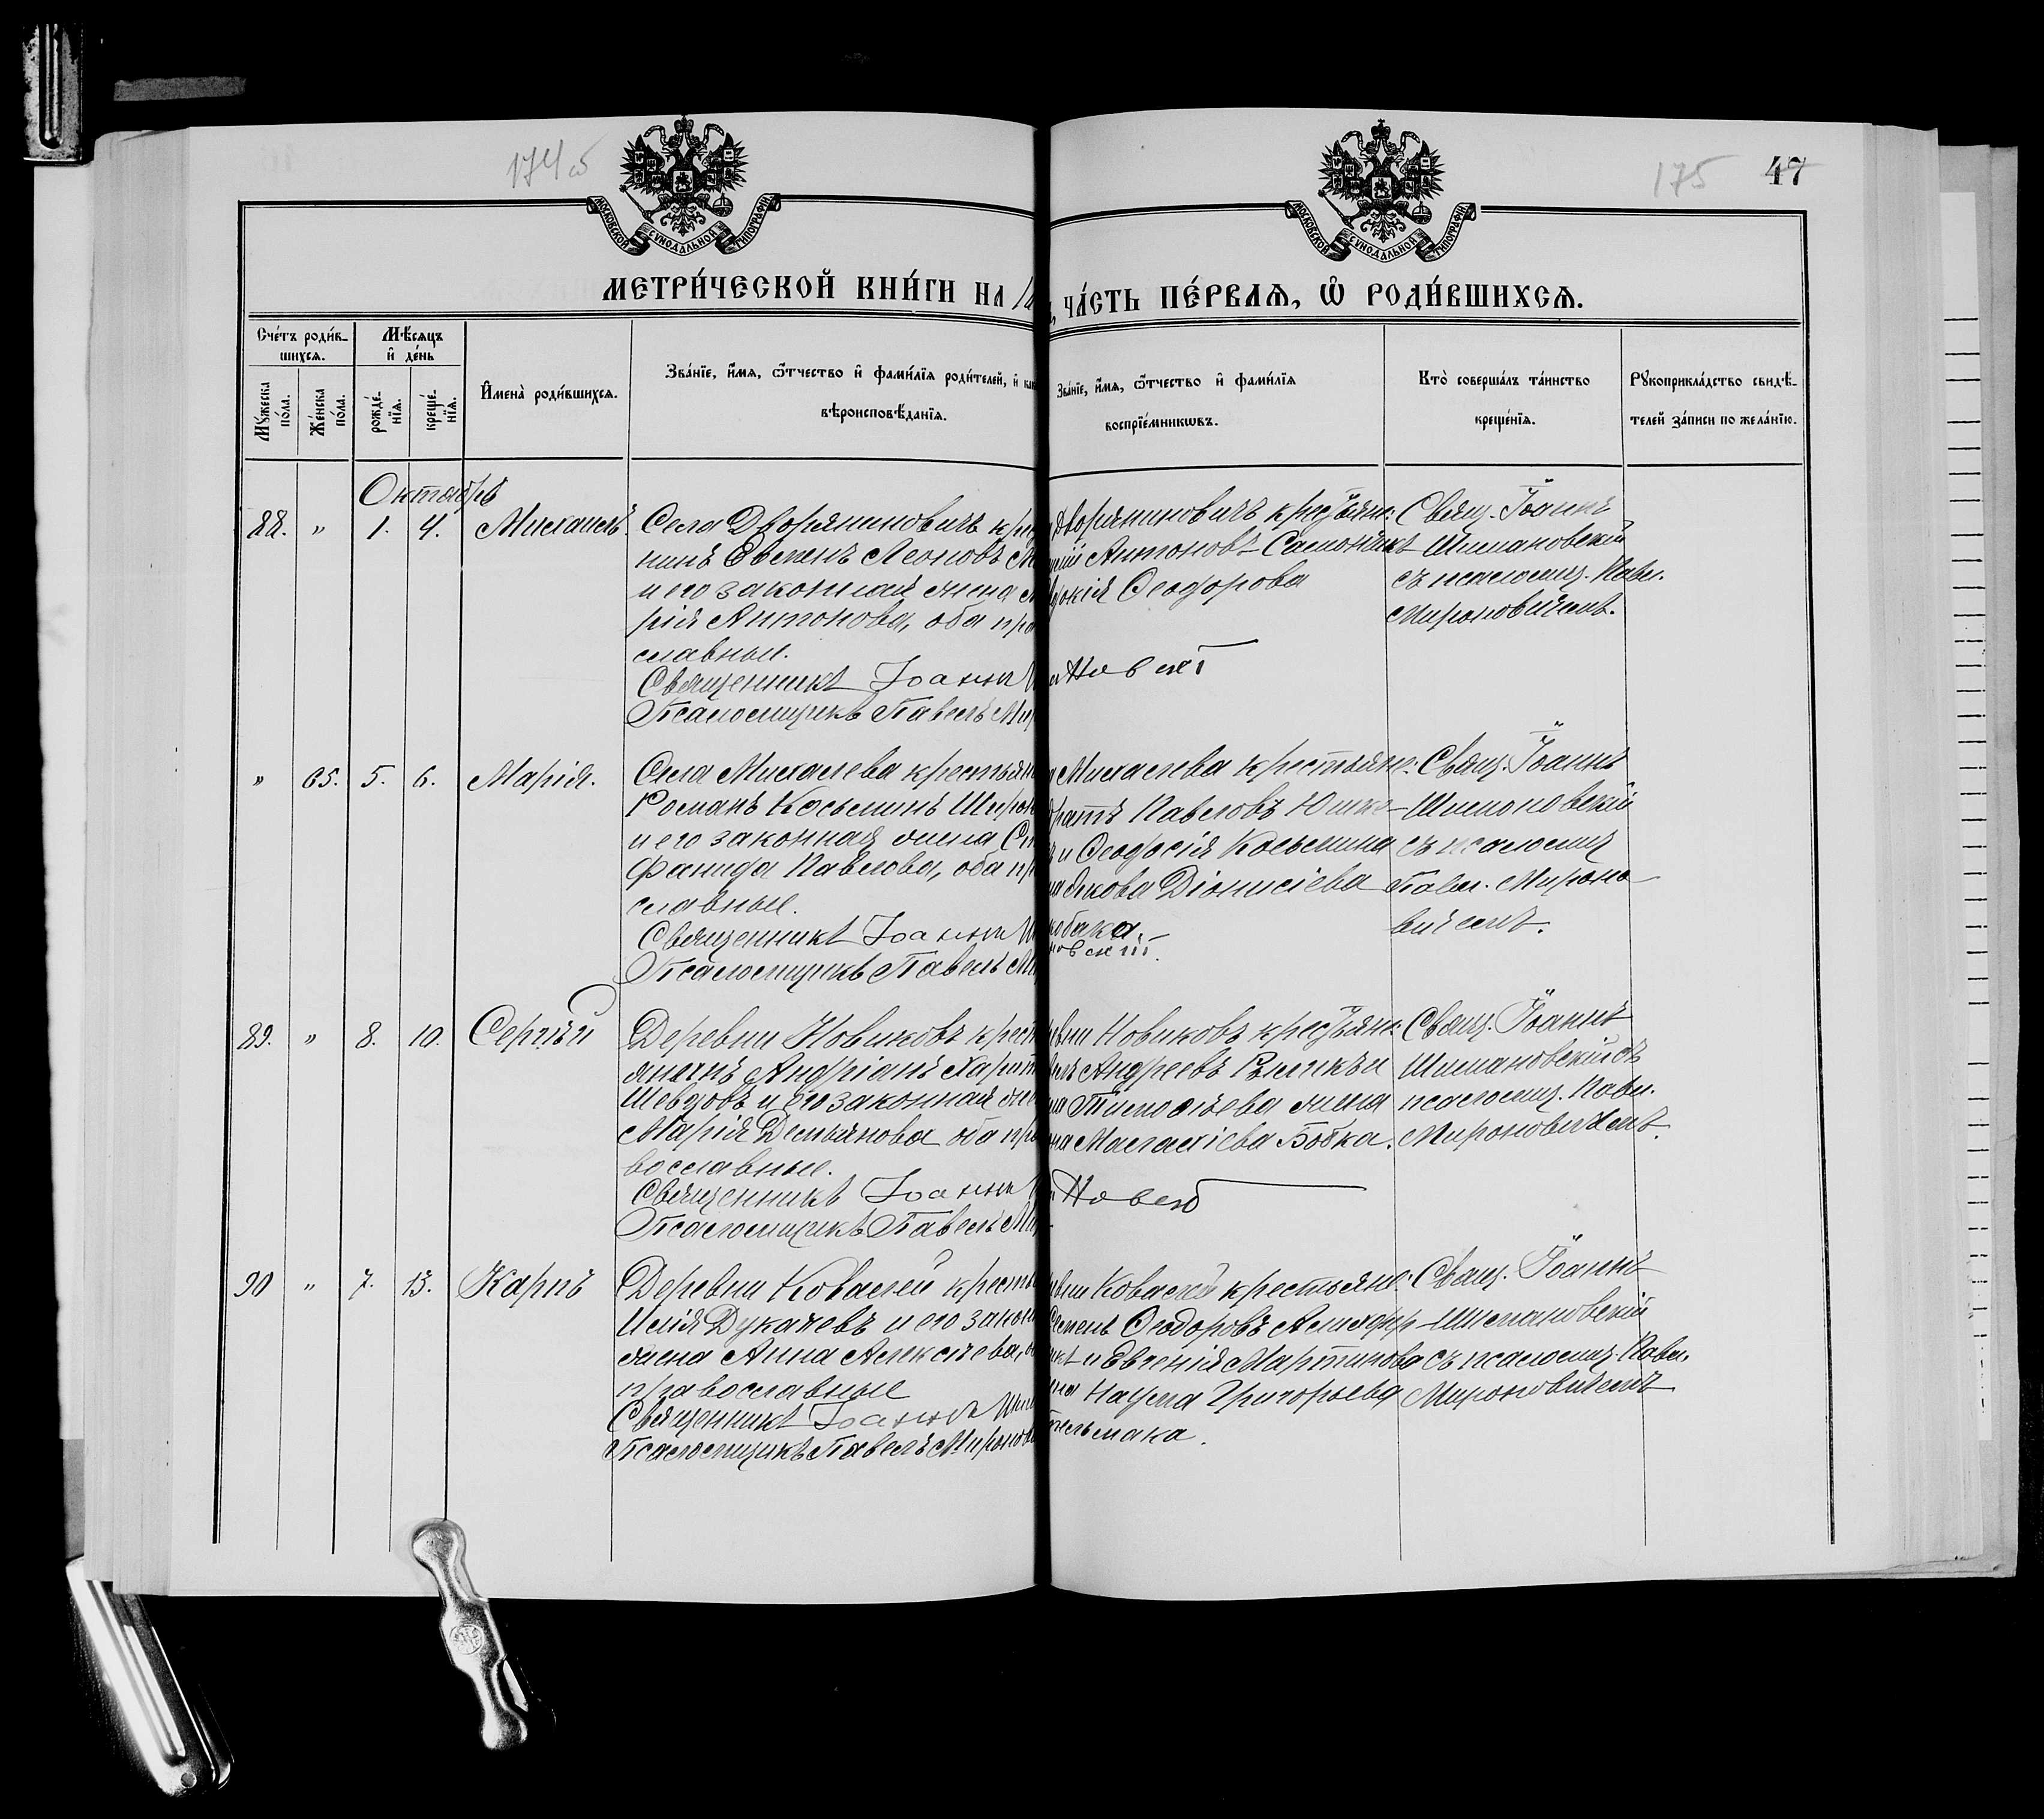 174 об
175 47
МОСКОВСКОЙ СУНОДАЛЬНОЙ ТИПОГРАФІИ
МОСКОВСКОЙ СУНОДАЛЬНОЙ ТИПОГРАФІИ
МЕТРИ́ЧЕСКОЙ КНИ́ГИ НА
ЧА́СТЬ ПЕ́РВАѦ, Ѡ҆ РОДИ́ВШИХСѦ.
Сче́тъ роди́в-
шихсѧ.
Мѣ́сѧцъ
и҆ де́нь
Мꙋ́жеска по́ла.
Же́нска по́ла.
рожде́-
нїѧ.
креще́-
нїѧ.
И҆мена̀ роди́вшихсѧ.
Зва́нїе, и҆́мѧ, ѻ҆́тчество и҆ фами́лїѧ роди́телей, и҆
вѣроисповѣ́данїѧ.
Зва́нїе, и҆́мѧ, ѻ҆́тчество и҆ фами́лїѧ
воспрїе́мникѡвъ.
Кто̀ соверша́лъ та́инство
креще́нїѧ.
Рꙋкоприкла́дство свидѣ́-
телей за́писи по жела́нїю.
Октябрь
88. " 1. 4. Михаилъ.
Села Дворяниновичъ кре
нинъ Евгенъ Леоновъ
и его законная жена
рія Антонова, оба пра
славные.
Священникъ Іоаннъ
Псаломщикъ Павелъ Мир
Дворяниновичъ крестьяне:
Антоновъ Самойликъ
Ѳеодорова
новскій
Свящ. Іоаннъ
Шимановскій
съ псаломщ. Павл.
Мироновичемъ.
" 65. 5. 6. Марія.
Села Михалева крестьян
Романъ Косьминъ
и его законная жена Сте
фанида Павлова, оба пра
славные.
Священникъ Іоаннъ
Псаломщикъ Павелъ Ми
Михалева крестьяне:
Павловъ
и Ѳеодосія Косьмина
Якова Діонисіева
новскій.
Свящ. Іоаннъ
Шимановскій
съ псаломщ
Павл. Мироно
вичемъ.
89. " 8. 10. Сергѣй
Деревни Новиковъ крест
янинъ Андріанъ Харит
Шевцовъ и его законная же
Марія Демьянова оба пра
вославные.
Священникъ Іоаннъ
Псаломщикъ Павелъ Ми
вни Новиковъ крестьяне:
Андреевъ
Тимоѳѣева жена
Малахіева Бобка.
Свящ. Іоаннъ
Шимановскій съ
псаломщ. Павл.
Мироновичемъ.
90 " 7. 13. Карпъ
Деревни Ковалей кресть
Илія Дукачевъ и его закон
жена Анна Алексѣева,
православные
Священникъ Іоаннъ Ши
Псаломщикъ Павелъ Миронов
вни Ковалей крестьяне:
Ѳеодоровъ
и Евгенія Мартинова
Наума Григорьева
Свящ. Іоаннъ
Шимановскій
съ псаломщ. Павл.
Мироновичемъ